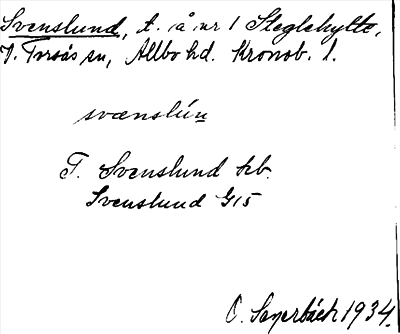 Svenslund, t. å nr 1 Steglehylte,
V. Torsås sn, Allbo hd. Kronob. l.
svænslún
T. Svenslund hb.
Svenslund G15
O. Sagerbäck 1934.